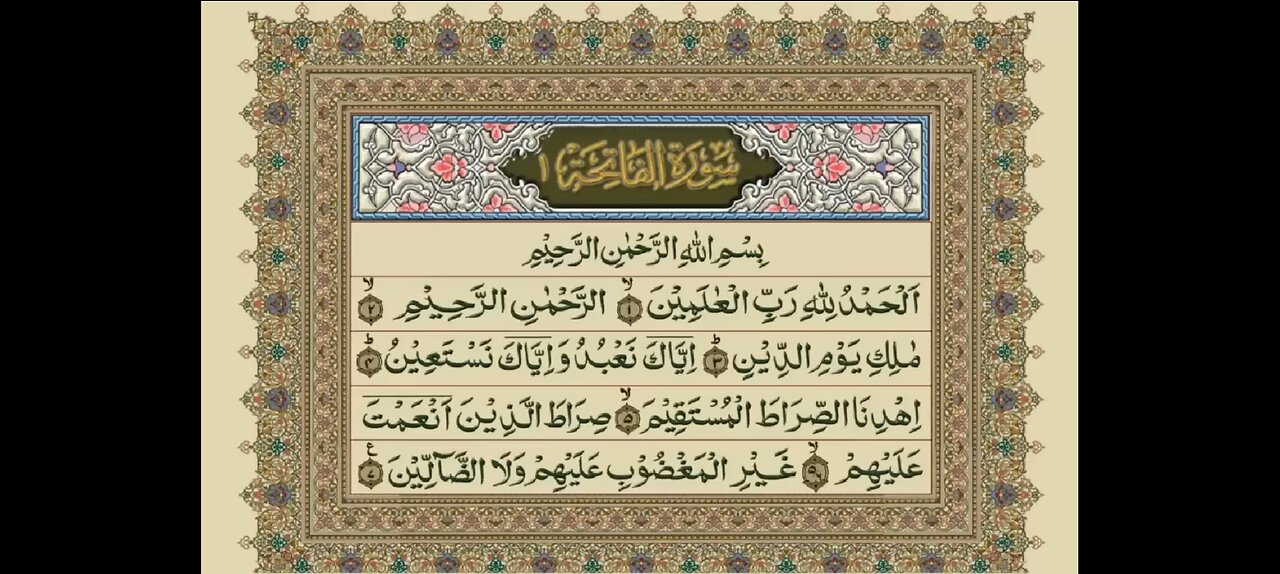 سُوْرَةُ الفَاتِحَة ١
بِسْمِ اللهِ الرَّحْمٰنِ الرَّحِيْمِ
اَلْحَمْدُ لِلّٰهِ رَبِّ الْعٰلَمِيْنَ ۙ﴿١﴾ الرَّحْمٰنِ الرَّحِيْمِ ۙ﴿٢﴾
مٰلِكِ يَوْمِ الدِّيْنِ ؕ﴿٣﴾ اِيَّاكَ نَعْبُدُ وَاِيَّاكَ نَسْتَعِيْنُ ؕ﴿٤﴾
اِهْدِنَا الصِّرَاطَ الْمُسْتَقِيْمَ ۙ﴿٥﴾ صِرَاطَ الَّذِيْنَ اَنْعَمْتَ
عَلَيْهِمْ ۙ غَيْرِ الْمَغْضُوْبِ عَلَيْهِمْ وَلَا الضَّآلِّيْنَ ﴿٧﴾ ع